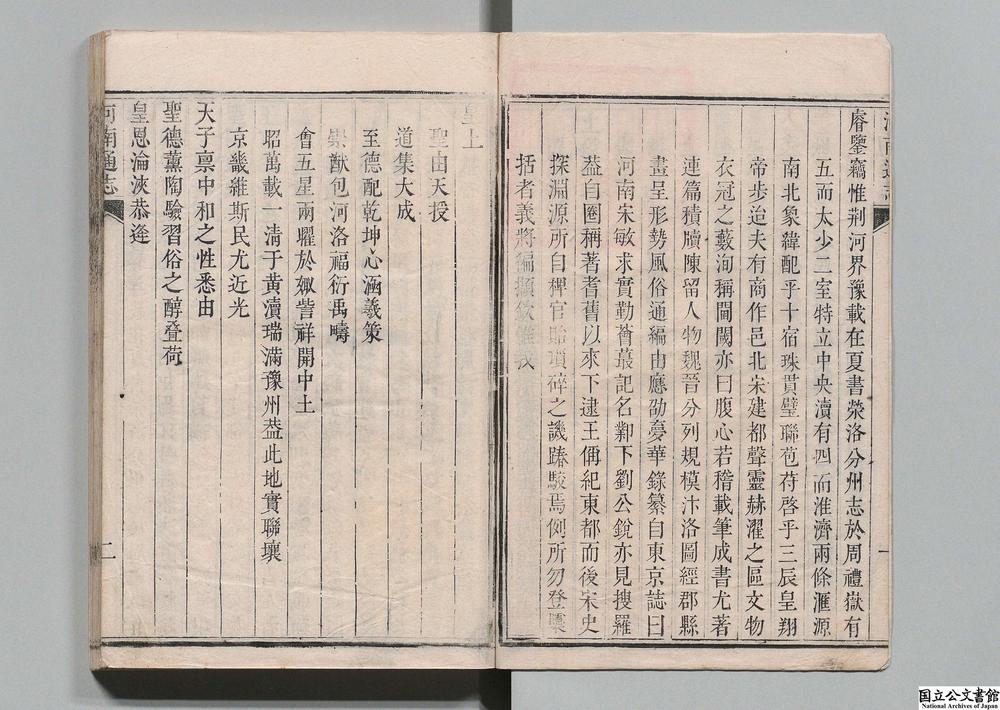 睿鑒竊惟荆河界豫載在夏書滎洛分州志於周禮嶽有
五而太少二室特立中央瀆有四而淮濟兩條滙源
南北象緯配乎十宿珠貫璧聯苞符啓乎三辰皇翔
帝步迨夫有商作邑北宋建都聲靈赫濯之區文物
衣冠之藪洵稱閫閾亦曰腹心若稽載筆成書尤著
連篇積牘陳留人物魏晉分列規模汴洛圖經郡縣
畫呈形勢風俗通編由應劭夢華錄纂自東京誌曰
河南宋敏求實勤薈蕞記名鄴下劉公銳亦見搜羅
葢自圈稱著耆舊以來下逮王偁紀東都而後宋史
探淵源所自稗官貽瑣碎之譏踳駮焉例所勿登囊
括者義將編纇欽惟我
皇上
聖由天授
道集大成
至德配乾坤心涵羲策
崇猷包河洛福衍禹疇
會五星兩曜於娵訾祥開中土
昭萬載一清于黃瀆瑞滿豫州葢此地實聯壤
京畿維斯民尤近光
天子稟中和之性悉由
聖德薰陶驗習俗之醇叠荷
皇恩淪浹恭逢
河南通志
二
国立公文書館
National Archives of Japan